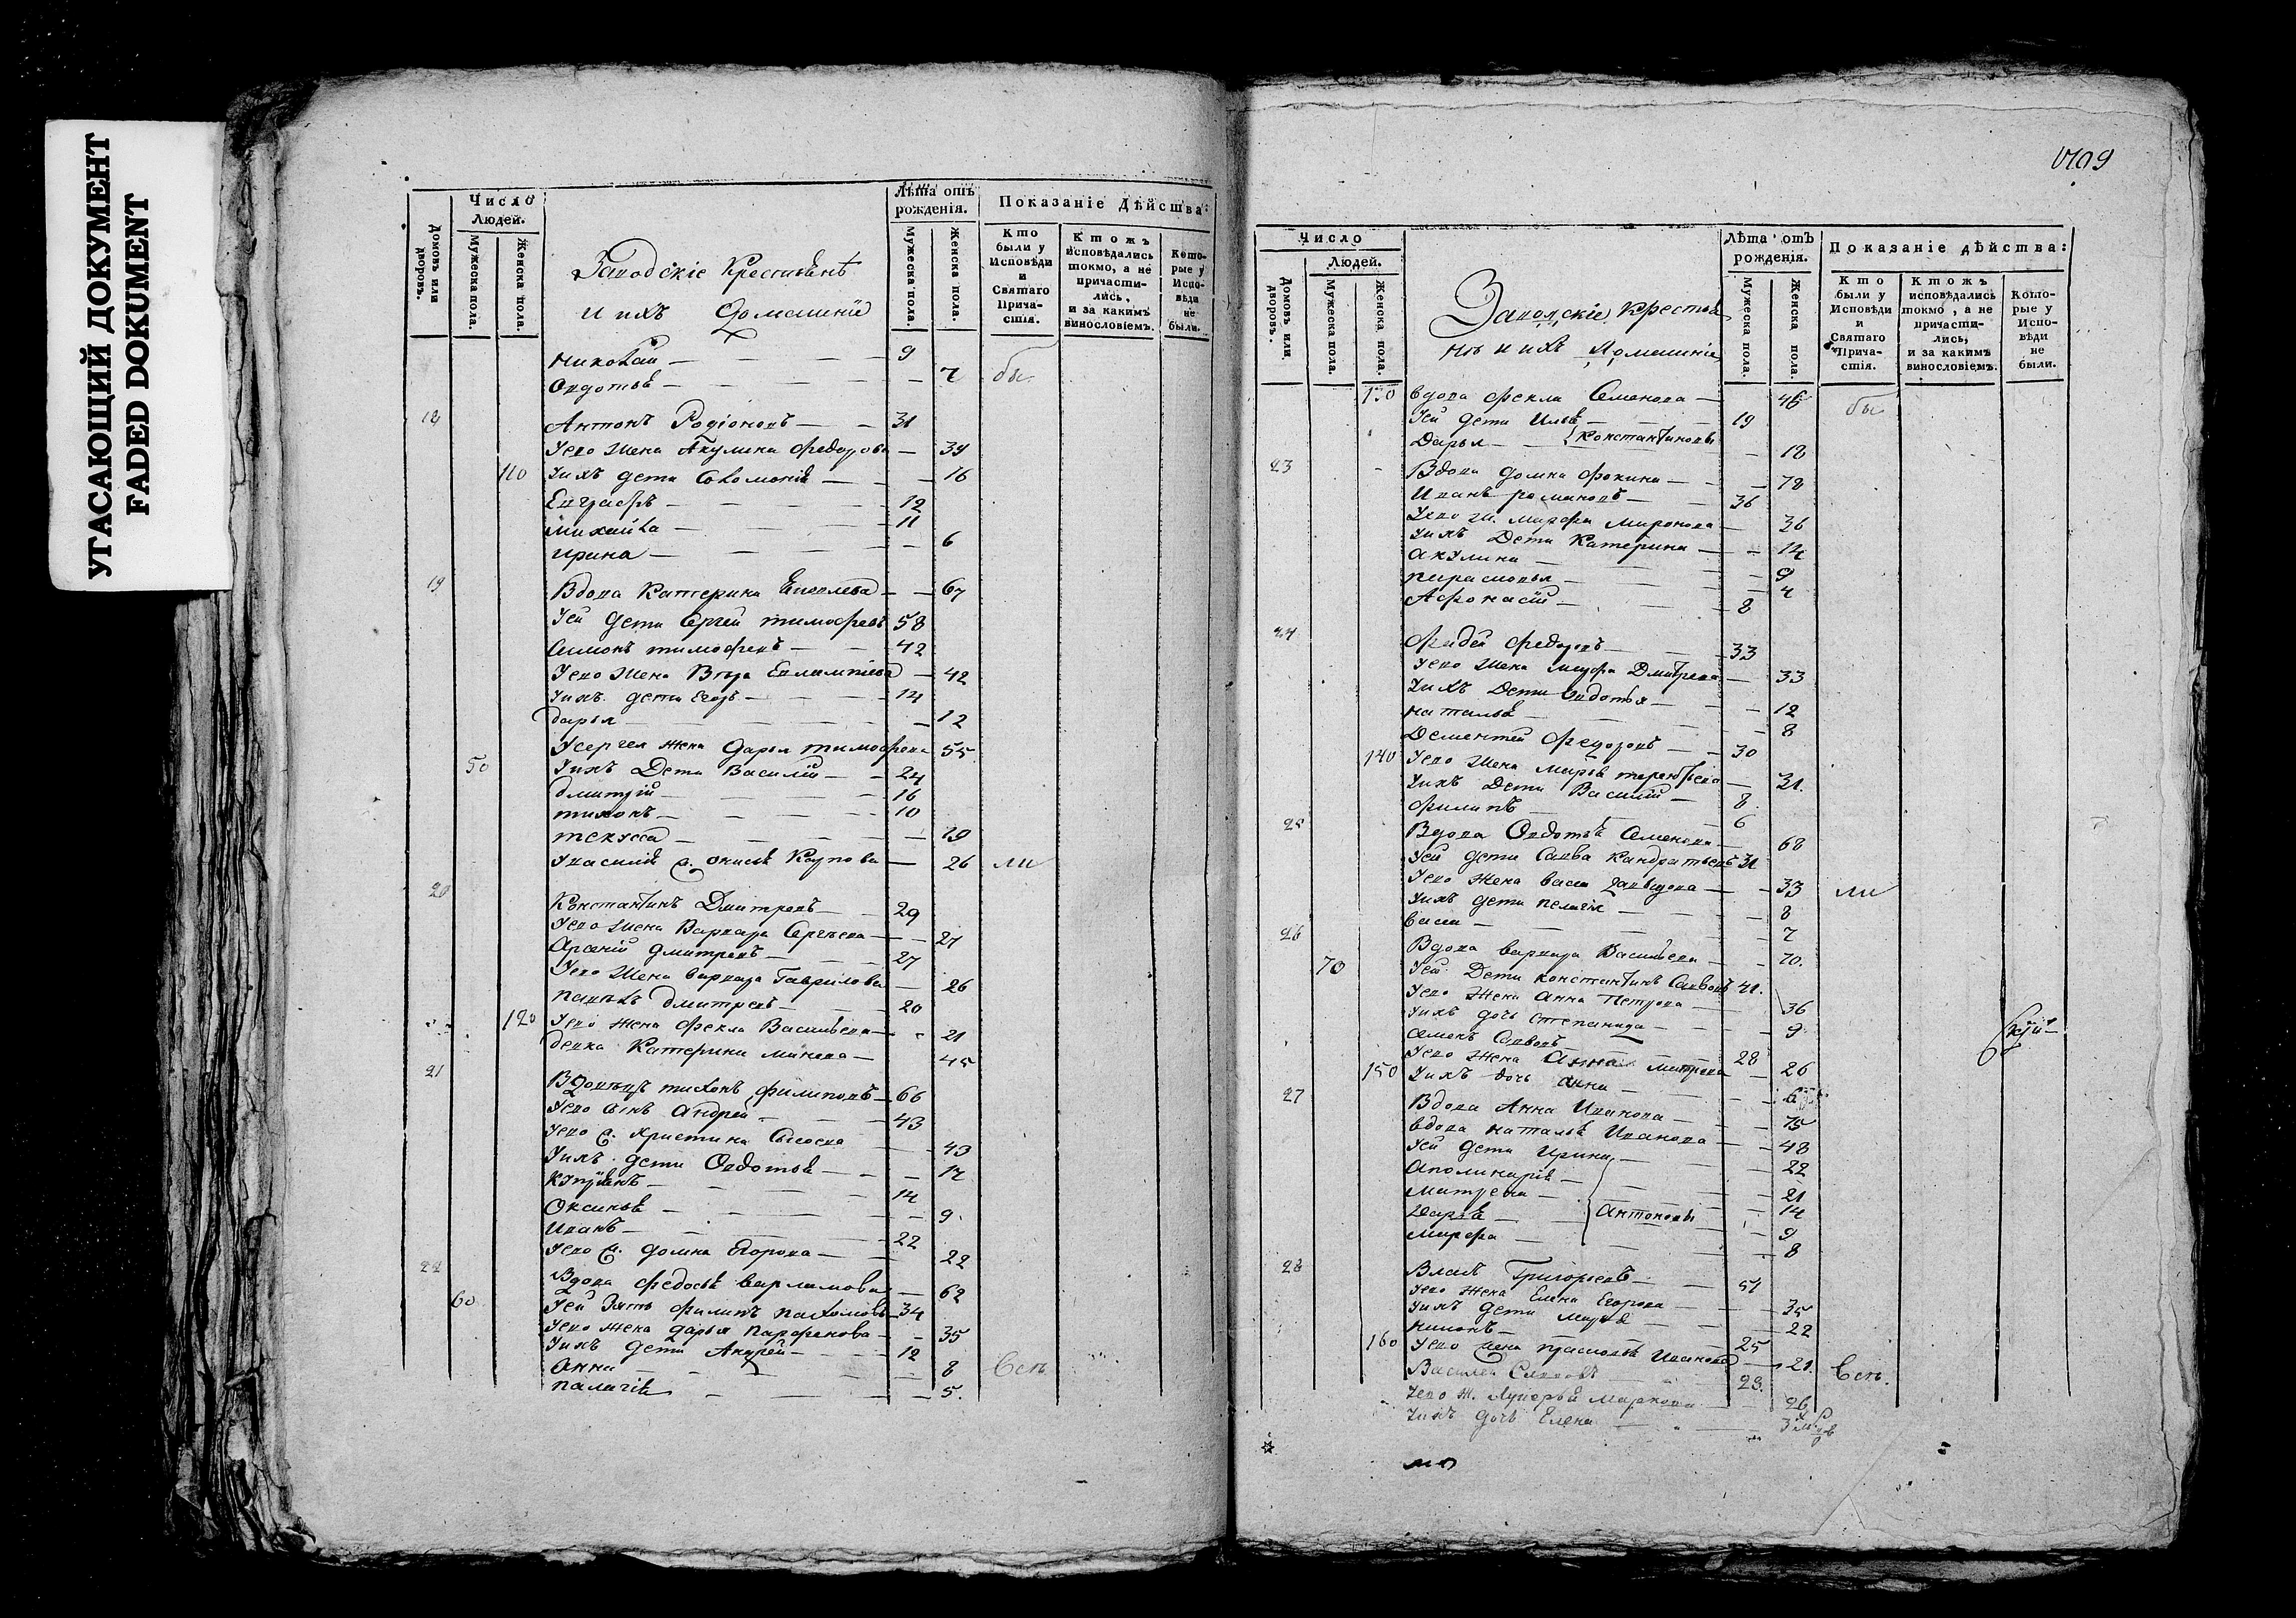 УГАСАЮЩИЙ ДОКУМЕНТ
FADED DOKUMENT
Домовъ или дворовъ.
Число Людей.
Мужеска пола.
Женска пола.
Заводскіе Крестьянѣ
и ихъ Домашніи
Лѣта отъ рожденія.
Мужеска пола.
Женска пола.
Показаніе Дѣйства:
Кто были у Исповѣди и Святаго Причастія.
Ктожъ исповѣдались токмо, а не причастились, и за какимъ винословіемъ.
Которые у Исповѣди не были.
Николай 9
Овдотья 7 бы
18 Антонъ Родіоновъ 31
Уево жена Акулина Федорова 39
110 Уихъ дети Соломонія 16
Евграфъ 12
михайла 11
ирина 6
19 Вдова Катерина 67
Уей дети Сергей тимофеевъ 58
Симонъ тимофеевъ 42
Уево жена Вера Евлампіева 42
Уихъ дети Егоръ 14
дарья 12
Усергея жена Дарья тимофеева 55
50 Уихъ Дети Василій 24
дмитрій 16
тихонъ 10
текусса 19
Увасилія ж. Карпова 26 ли
20 Константинъ Дмитревъ 29
Уево жена Варвара Сергеева 27
Арсеній дмитревъ 27
Уево жена варвара Гаврилова 26
Павелъ дмитревъ 20
120 Уево жена Фекла Васильева 21
девка Катерина минеева 45
21 Вдовецъ тихонъ филиповъ 66
Уево сынъ Андрей 43
Уево ж. христина Сысоева 43
Уихъ дети Овдотья 17
Купріянъ 14
Оксинья 9
Иванъ 22
Уево ж. домна Егорова 22
22 Вдова федосья варламова 62
60 Уей Зять филипъ пахомовъ 34
Уево жена дарья парфенова 35
Уихъ дети Андрей 12
Анна 8 Есть
палагія 5.
Число
Домовъ или дворовъ.
Людей.
Мужеска пола.
Женска пола.
Заводскіе Крестья
нѣ и ихъ Домашніи
Лѣта отъ рожденія.
Мужеска пола.
Женска пола.
Показаніе дѣйства:
Кто были у Исповѣди и Святаго Причастія.
Ктожъ исповѣдались токмо, а не причастились, и за какимъ винословіемъ.
Которые у Исповѣди не были.
130 вдова фекла Семенова 46 бы
Уей дети Илья 19
Дарья Константиновы 18
23 Вдова домна фокина 78
Иванъ романовъ 36
Уево ж. марфа миронова 36
Уихъ Дети Катерина 14
акулина 9
парасковья 4
Афонасій 8
24 Фадей федоровъ 33
Уево жена Дмитрева 33
Уихъ Дети Овдотья 12
наталья 8
Дементей федоровъ 30
140 Уево жена марья терентьева 31.
Уихъ Дети Василій 8
филипъ 6
25 Вдова Овдотья Семенова 68
Уей дети Савва Кандратьевъ 31
Уево жена васса давыдова 33 ли
Уихъ дети пелагія 8
васса 7
26 Вдова варвара Васильева 70.
70 Уей Дети константинъ Саввовъ 41.
Уево Жена анна Петрова 36
Уихъ дочь степанида 9
семенъ Саввовъ 28
Уево Жена Анна митрева 26
150 Уихъ дочь анна 6
27 Вдова Анна Иванова 75
вдова наталья Иванова 48
Уей дети ирина 22
Аполинарія 21
матрена 14
дарья Антоновы 9
марфа 8
28 Власъ Григорьевъ 51
Уево жена Елена Егорова 35
Уихъ дети марья 22
никонъ 25
160 Уево жена прасковья Иванова 21. Есть.
Василей Саввовъ 23.
Уево ж. Лукерья маркова 26
Уихъ дочь Елена 3